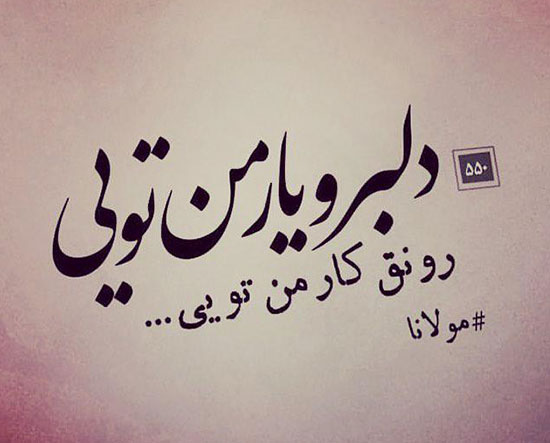 ۵۵۰
دلبر و یار من تویی
رونق کار من تویی...
#مولانا